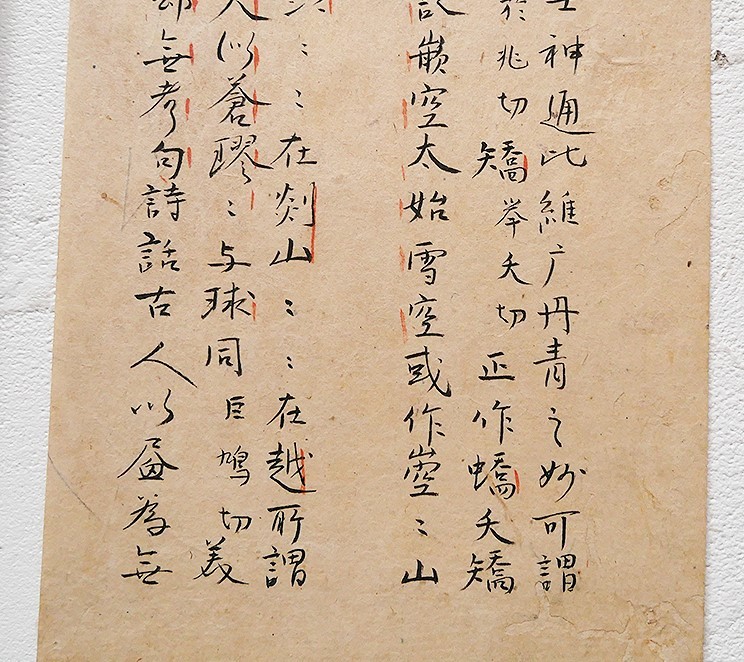 神通比維广丹青之妙可謂
於兆切矯举夭切正作蟜夭矯
嵌空太始雪空或作崆：山
：：在剡山：：在越所謂
人以蒼璆：与球同巨鸠切美
無考句詩話古人以為無